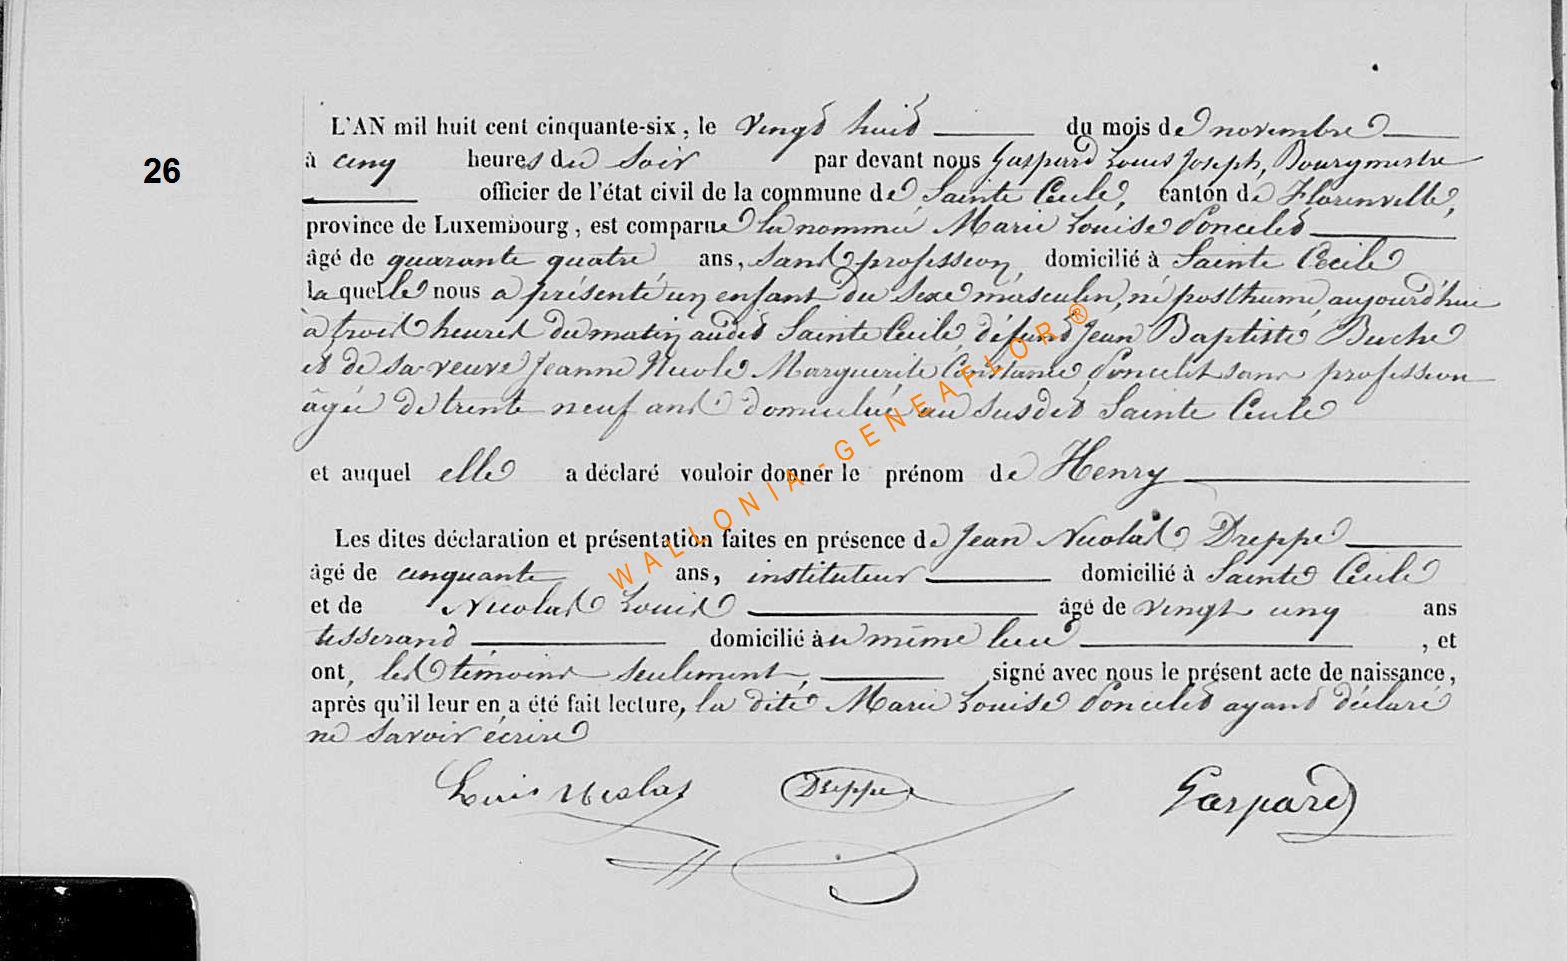 L'AN mil huit cent cinquante-six, le vingt huit du mois de novembre
26
à cinq heures du soir par devant nous Gaspard Louis Joseph, Bourgmestre
officier de l'état civil de la commune de Sainte Cécile, canton de Florenville,
province de Luxembourg, est comparue la nommée Marie Louise Poncelet
âgé de quarante quatre ans, sans profession, domicilié à Sainte Cécile
laquelle nous a présenté un enfant du sexe masculin, né posthume, aujourd'hui
à trois heures du matin audit Sainte Cécile, défunt Jean Baptiste Buche
et de sa veuve Jeanne Nicole Marguerite Constance Poncelet sans profession
âgée de trente neuf ans domiciliée au susdit Sainte Cécile
et auquel elle a déclaré vouloir donner le prénom de Henry
Les dites déclaration et présentation faites en présence de Jean Nicolas Dreppe
âgé de cinquante ans, instituteur domicilié à Sainte Cécile
et de Nicolas Louis âgé de vingt cinq ans
tisserand domicilié au même lieu , et
ont, les témoins seulement, signé avec nous le présent acte de naissance,
après qu'il leur en a été fait lecture, la dite Marie Louise Poncelet ayant déclaré
ne savoir écrire
Louis Nicolas Dreppe Gaspard
WALLONIA-GENEAFLOR®